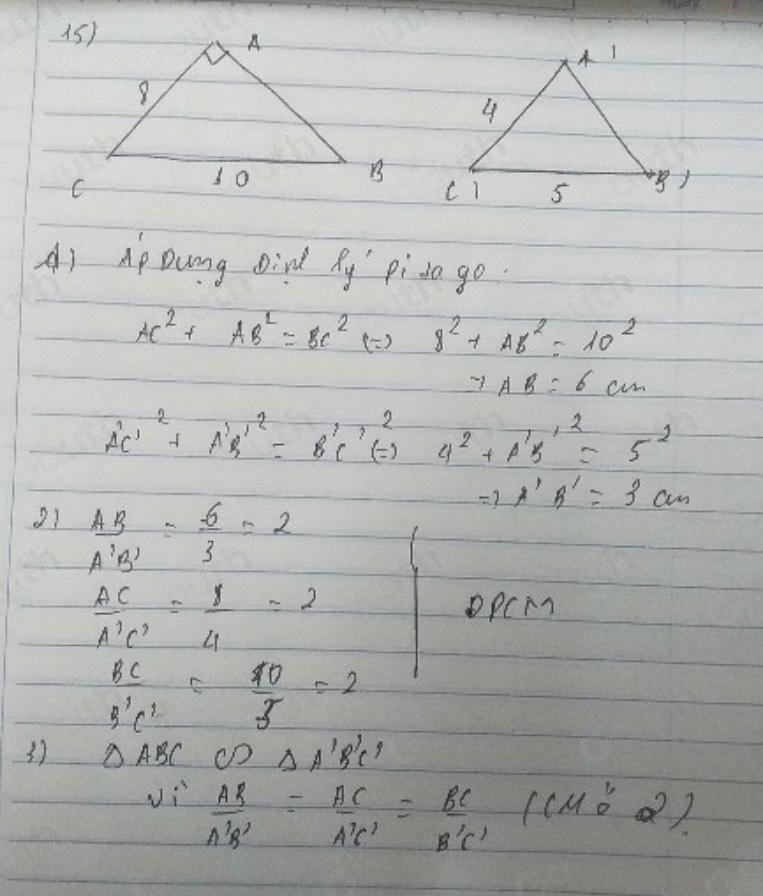 15)
A
8
C
10
B
A'
4
C'
5
B'
1) Áp Dụng Định lý pi ta go.
AC² + AB² = BC² (=) 8² + AB² = 10²
→ AB = 6 cm
A'C'² + A'B'² = B'C'² (=) 4² + A'B'² = 5²
=> A'B' = 3 cm
2) AB/A'B' = 6/3 = 2
AC/A'C' = 8/4 = 2
ĐPCM
BC/B'C' = 10/5 = 2
3) Δ ABC ∽ Δ A'B'C'
vì AB/A'B' = AC/A'C' = BC/B'C' (CM ở 2).